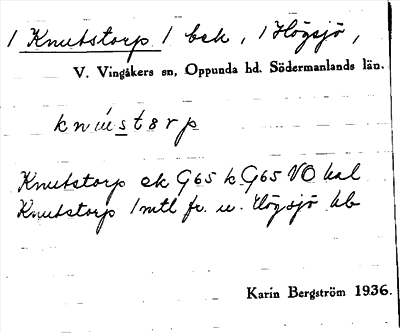 / Knutstorp / bsk, / Högsjö,
V. Vingåkers sn, Oppunda hd. Södermanlands län.
knústorp
Knutstorp ek G65 k G65 VO hal
Knutstorp /mtl fr. u. Högsjö hb
Karin Bergström 1936.